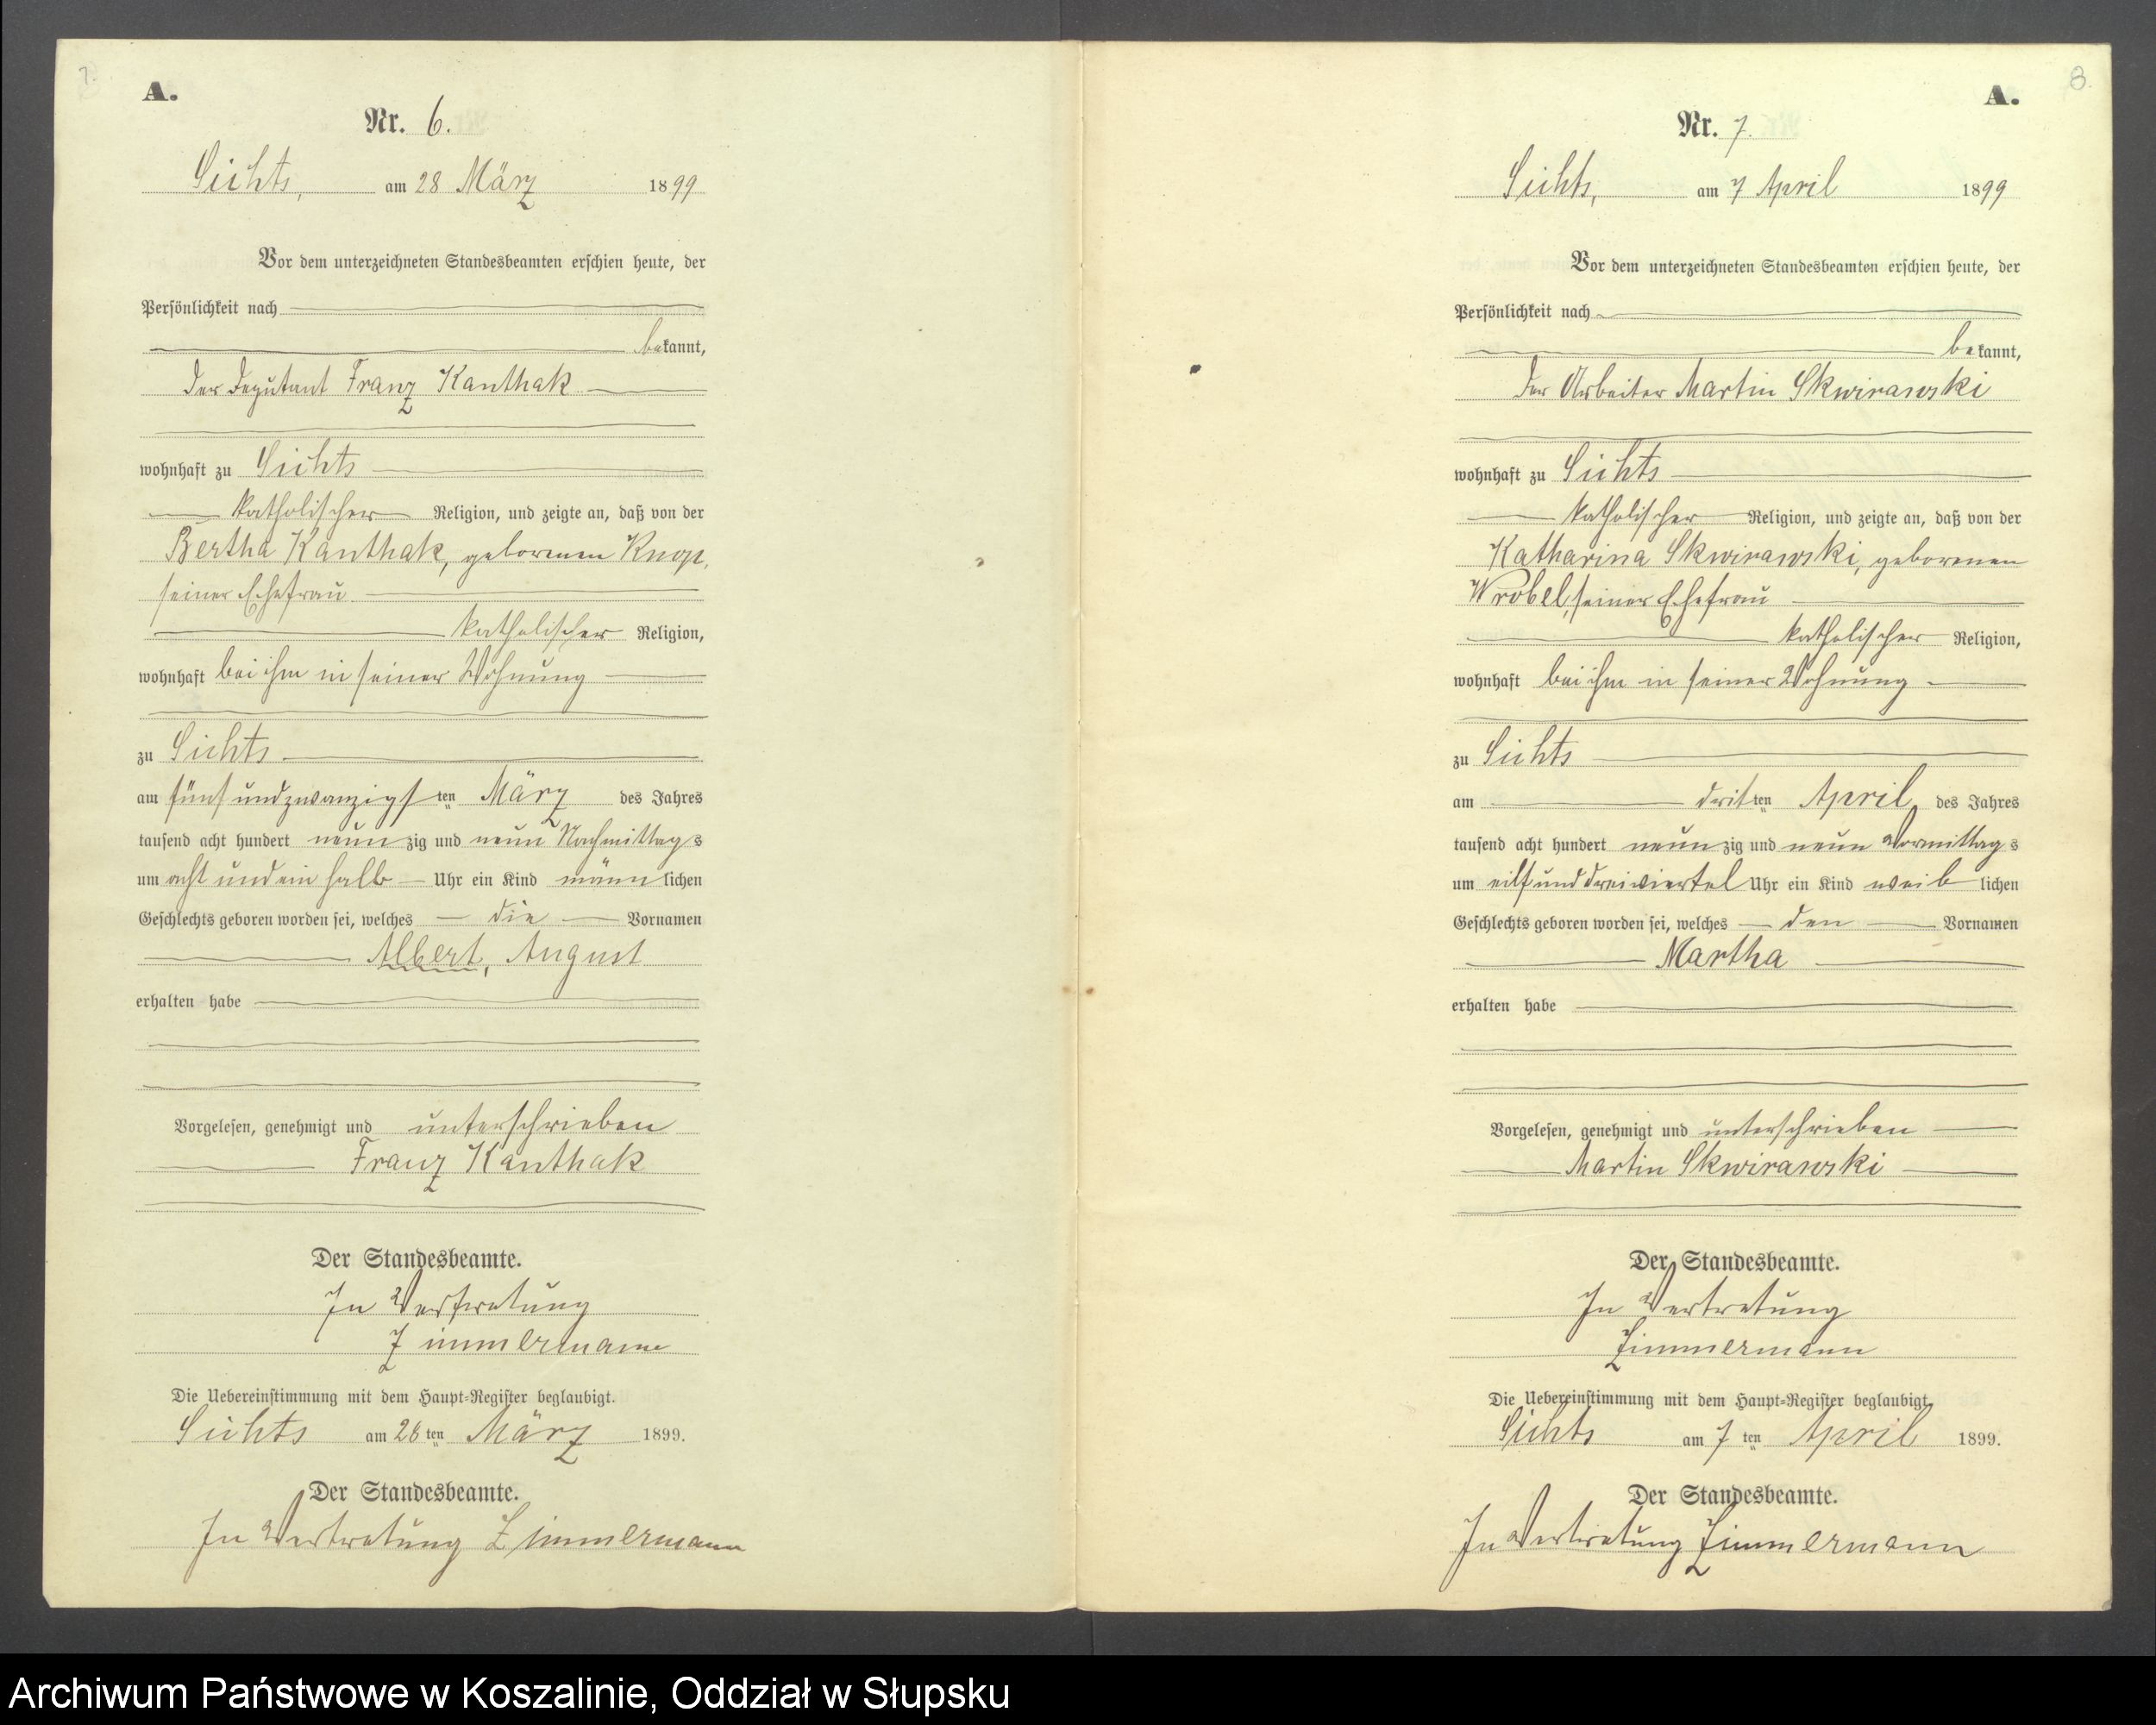 7.
A.
Nr. 6.
Sichts, am 28 März 1899
Vor dem unterzeichneten Standesbeamten erschien heute, der
Persönlichkeit nach
bekannt,
der Deputant Franz Kanthak
wohnhaft zu Sichts
katholischer Religion, und zeigte an, daß von der
Bertha Kanthak, geborenen Knop,
seiner Ehefrau
katholischer Religion,
wohnhaft bei ihm in seiner Wohnung
zu Sichts
am fünfundzwanzigsten März des Jahres
tausend acht hundert neunzig und neun Nachmittags
um acht und ein halb Uhr ein Kind männlichen
Geschlechts geboren worden sei, welches die Vornamen
Albert, August
erhalten habe
Vorgelesen, genehmigt und unterschrieben
Franz Kanthak
Der Standesbeamte.
In Vertretung
Zimmermann
Die Uebereinstimmung mit dem Haupt-Register beglaubigt.
Sichts am 28ten März 1899.
Der Standesbeamte.
In Vertretung Zimmermann
8.
A.
Nr. 7.
Sichts, am 7 April 1899
Vor dem unterzeichneten Standesbeamten erschien heute, der
Persönlichkeit nach
bekannt,
der Arbeiter Martin Skwirawski
wohnhaft zu Sichts
katholischer Religion, und zeigte an, daß von der
Katharina Skwirawski, geborenen
Wrobel, seiner Ehefrau
katholischer Religion,
wohnhaft bei ihm in seiner Wohnung
zu Sichts
am dritten April des Jahres
tausend acht hundert neunzig und neun Vormittags
um eilf und dreiviertel Uhr ein Kind weiblichen
Geschlechts geboren worden sei, welches den Vornamen
Martha
erhalten habe
Vorgelesen, genehmigt und unterschrieben
Martin Skwirawski
Der Standesbeamte.
In Vertretung
Zimmermann
Die Uebereinstimmung mit dem Haupt-Register beglaubigt.
Sichts am 7ten April 1899.
Der Standesbeamte.
In Vertretung Zimmermann
Archiwum Państwowe w Koszalinie, Oddział w Słupsku